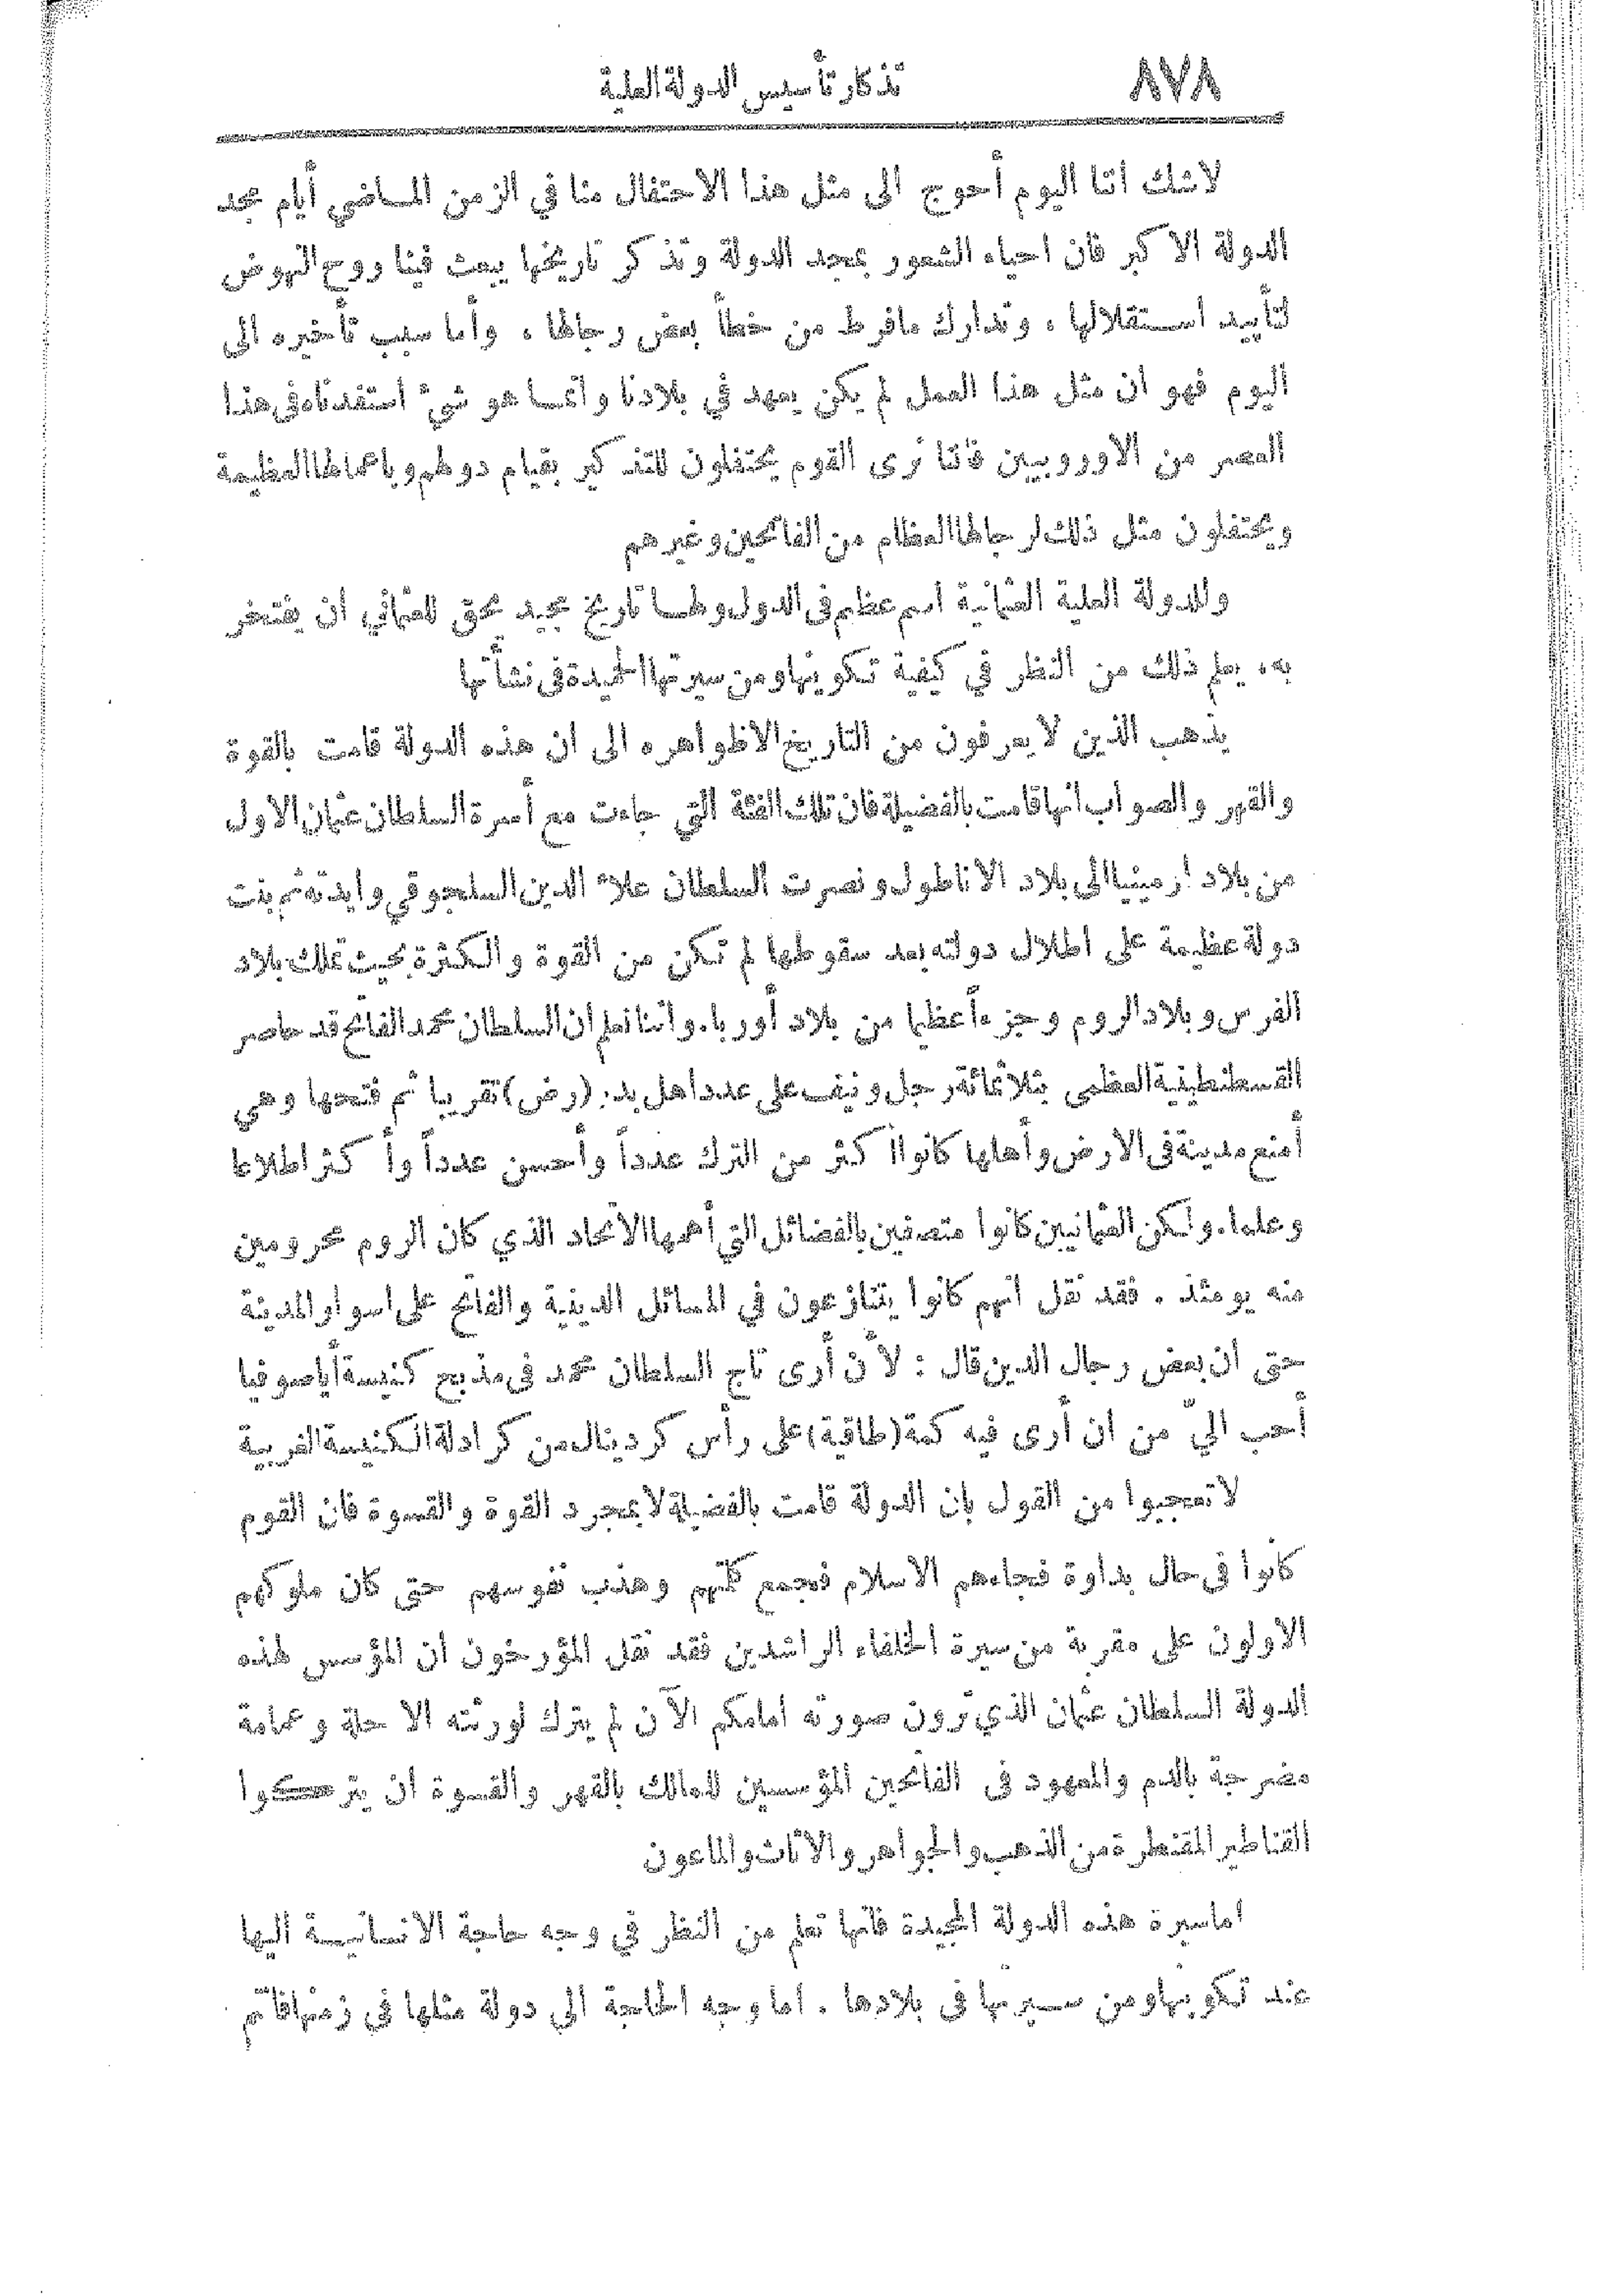 ٨٧٨ تذكار تأسيس الدولة العلية
لاشك اننا اليوم أحوج الى مثل هذا الاحتفال منا في الزمن المـاضي أيام مجد
الدولة الاكبر فان احياء الشعور بمجد الدولة وتذكر تاريخها يبعث فينا روح النهوض
لتأييد استقلالها ، وتدارك مافرط من خطأ بعض رجالها ، وأما سبب تأخيره الى
اليوم فهو ان مثل هذا العمل لم يكن يعهد في بلادنا وانمـا هو شيء استفدناه في هذا
العصر من الاوروبيين فاننا نرى القوم يحتفلون للتذكير بقيام دولهم وباعمالها العظيمة
ويحتفلون مثل ذلك لرجالها العظام من الفاتحين وغيرهم
وللدولة العلية العثمانية اسم عظيم في الدول ولهـا تاريخ مجيد يحق للعثماني أن يفتخر
به، يعلم ذلك من النظر في كيفية تكوينها ومن سيرتها الحميدة في نشأتها
يذهب الذين لا يعرفون من التاريخ الا ظواهره الى ان هذه الدولة قامت بالقوة
والقهر والصواب انها قامت بالفضيلة فان تلك الفئة التي جاءت مع أسرة السلطان عثمان الاول
من بلاد ارمينيا الى بلاد الاناطول ونصرت السلطان علاء الدين السلجوقي وايدته ثم بنت
دولة عظيمة على اطلال دولته بعد سقوطها لم تكن من القوة والكثرة بحيث تملك بلاد
الفرس وبلاد الروم وجزءاً عظيما من بلاد أوربا. واننا نعلم ان السلطان محمد الفاتح قد حاصر
القسطنطينية العظمى بثلاثمائة رجل ونيف على عدد اهل بدر (رض) تقريبا ثم فتحها وهي
أمنع مدينة في الارض وأهلها كانوا اكثر من الترك عدداً وأحسن عدداً وأكثر اطلاعا
وعلما. ولكن العثمانيين كانوا متصفين بالفضائل التي أهمها الاتحاد الذي كان الروم محرومين
منه يومئذ . فقد نقل انهم كانوا يتنازعون في المسائل الدينية والفاتح على اسوار المدينة
حتى ان بعض رجال الدين قال : لأن أرى تاج السلطان محمد في مذبح كنيسة أياصوفيا
أحب اليّ من ان أرى فيه كمة (طاقية) على رأس كردينال من كرادلة الكنيسة الغربية
لا تعجبوا من القول بان الدولة قامت بالفضيلة لا بمجرد القوة والقسوة فان القوم
كانوا في حال بداوة فجاءهم الاسلام فجمع كلمتهم وهذب نفوسهم حتى كان ملوكهم
الاولون على مقربة من سيرة الخلفاء الراشدين فقد نقل المؤرخون ان المؤسس لهذه
الدولة السلطان عثمان الذي ترون صورته امامكم الآن لم يترك لورثته الا حلة وعمامة
مضرجة بالدم والمعهود في الفاتحين المؤسسين للممالك بالقهر والقسوة ان يتركوا
القناطير المقنطرة من الذهب والجواهر والاثاث والماعون
اما سيرة هذه الدولة المجيدة فانها تعلم من النظر في وجه حاجة الانسانيـة اليها
عند تكوينها ومن سيرتها في بلادها . اما وجه الحاجة الى دولة مثلها في زمنها فانتم